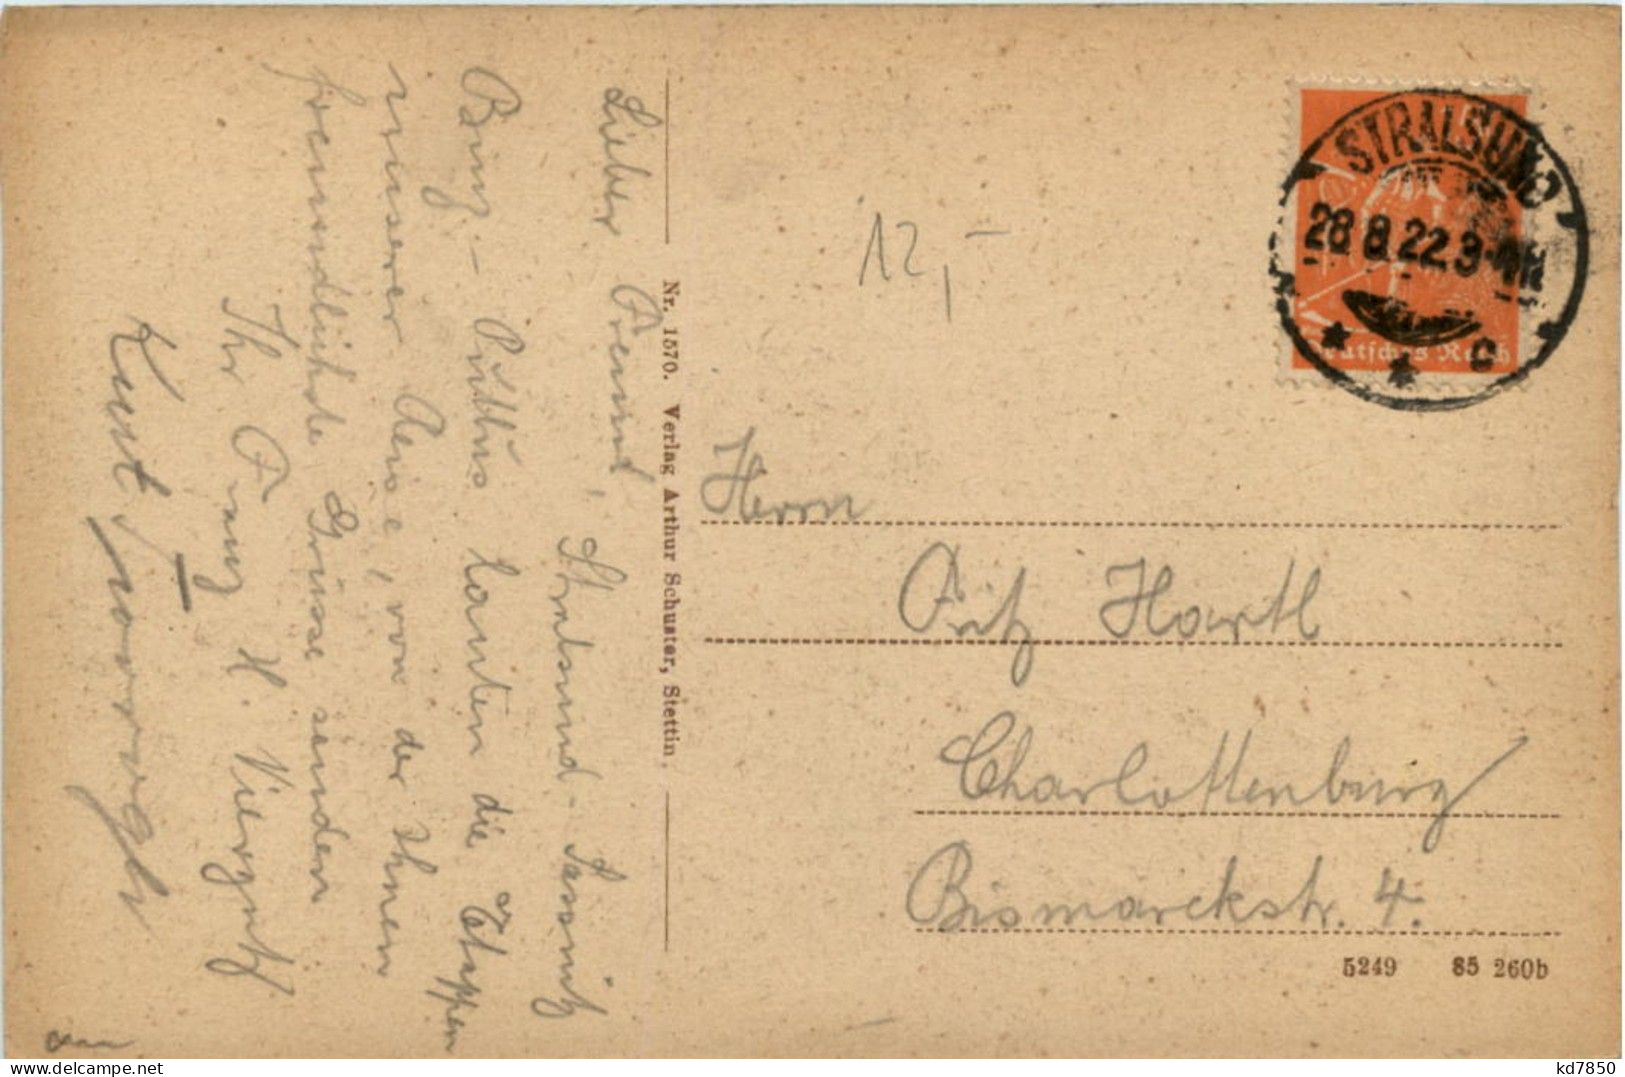 Lieber Freund, Stralsund-Sassnitz
Binz - Putbus lauten die Etappen
unserer Reise, von der Ihnen
freundlichste Grüsse senden
Ihr Franz H. Vierzntz
Kurt
Nr. 1570. Verlag Arthur Schuster, Stettin.
12,-
STRALSUND
28 8 22 3-4N
* * c
Deutsches Reich
Herrn
Fritz Hartl
Charlottenburg
Bismarckstr. 4.
5249 85 260b
delcampe.net
kd7850